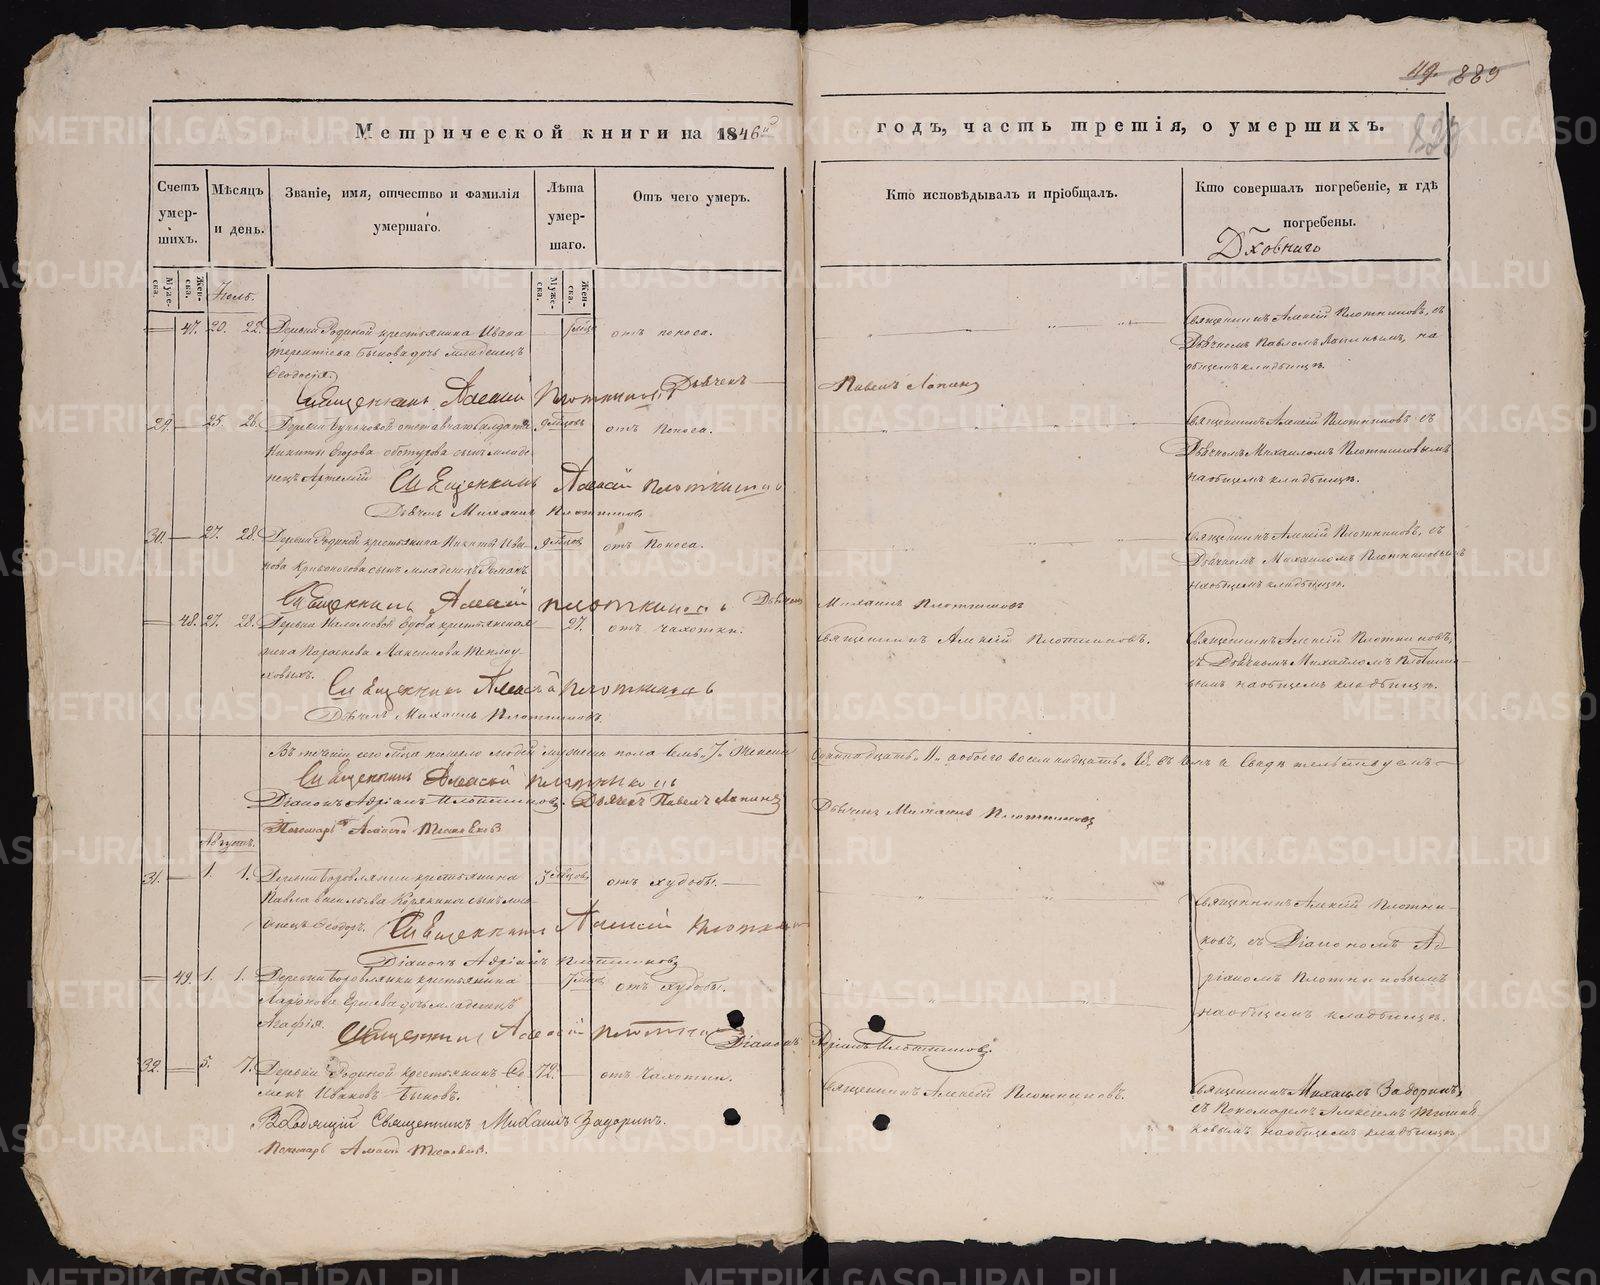 119. 889
Метрической книги на 1846й годъ, часть третія, о умершихъ.
Счетъ умер-шихъ.
Мѣсяцъ и день.
Званіе, имя, отчество и фамилія умершаго.
Лѣта умер-шаго.
Отъ чего умеръ.
Кто исповѣдывалъ и пріобщалъ.
Кто совершалъ погребеніе, и гдѣ погребены.
Муже-ска.
Жен-ска.
Муже-ска.
Жен-ска.
Іюль.
47. 20. 22. Деревни Родиной крестьянина Ивана
отъ поноса.
Священникъ Алексій Плотниковъ, съ
терентіева Быкова дочь младенецъ
Дьячкомъ Павломъ Лапинымъ, на
Ѳеодосія.
общемъ кладбищѣ.
Священникъ Алексій Плотниковъ Дьячекъ Павелъ Лапинъ
29. 25. 26. Деревни
отъ поноса.
Священникъ Алексій Плотниковъ съ
Никиты Егорова сынъ младе-
Дьячкомъ Михаиломъ Плотниковымъ
нецъ Артемій
на общемъ кладбищѣ.
Священникъ Алексій Плотниковъ
Дьячекъ Михаилъ Плотниковъ
30. 27. 28. Деревни Родиной крестьянина Никиты Ива-
отъ поноса.
Священникъ Алексій Плотниковъ, съ
нова Кривоногова сынъ младенецъ Романъ.
Дьячкомъ Михаиломъ Плотниковымъ
на общемъ кладбищѣ.
Священникъ Алексій Плотниковъ Дьячекъ Михаилъ Плотниковъ
48. 27. 28. Деревни вдова крестьянская
27. отъ чахотки.
Священникъ Алексій Плотниковъ.
Священникъ Алексій Плотниковъ,
жена Параскева Максимова Теплоу-
съ Дьячкомъ Михайломъ Плотнико-
ховыхъ.
вымъ на общемъ кладбищѣ.
Священникъ Алексій Плотниковъ
Дьячекъ Михаилъ Плотниковъ.
Въ теченіи сего м͠ца померло людей мужеска пола семь „7„ женска Одиннадцать „11„ а обоего восемнадцать „18„ въ чемъ и Свидѣтельствуемъ
Священникъ Алексій Плотниковъ
Діаконъ Адріанъ Плотниковъ. Дьячекъ Павелъ Лапинъ
Дьячекъ Михаилъ Плотниковъ
Пономарь Алексѣй
Августъ.
31. 1. 1. Деревни Боровлянки крестьянина
отъ худобы.
Священникъ Алексій Плотни-
Павла васильева Корякина сынъ мла-
ковъ, съ Діакономъ Ад-
денецъ Ѳеодоръ.
Священникъ Алексій Плотниковъ
Діаконъ Адріанъ Плотниковъ
49. 1. 1. Деревни Боровлянки крестьянина
отъ худобы.
ріаномъ Плотниковымъ
дочь младенецъ
на общемъ кладбищѣ.
Агафія.
Священникъ Алексій Плотниковъ Діаконъ Адріанъ Плотниковъ.
32. 5. 7. Деревни Родиной крестьянинъ Се-
72. отъ чахотки.
Священникъ Алексій Плотниковъ.
Священникъ Михаилъ Задоринъ,
менъ Ивановъ Быковъ.
съ Пономаремъ Алексѣемъ
на общемъ кладбищѣ.
Священникъ Михаилъ Задоринъ.
Пономарь Алексѣй
METRIKI.GASO-URAL.RU